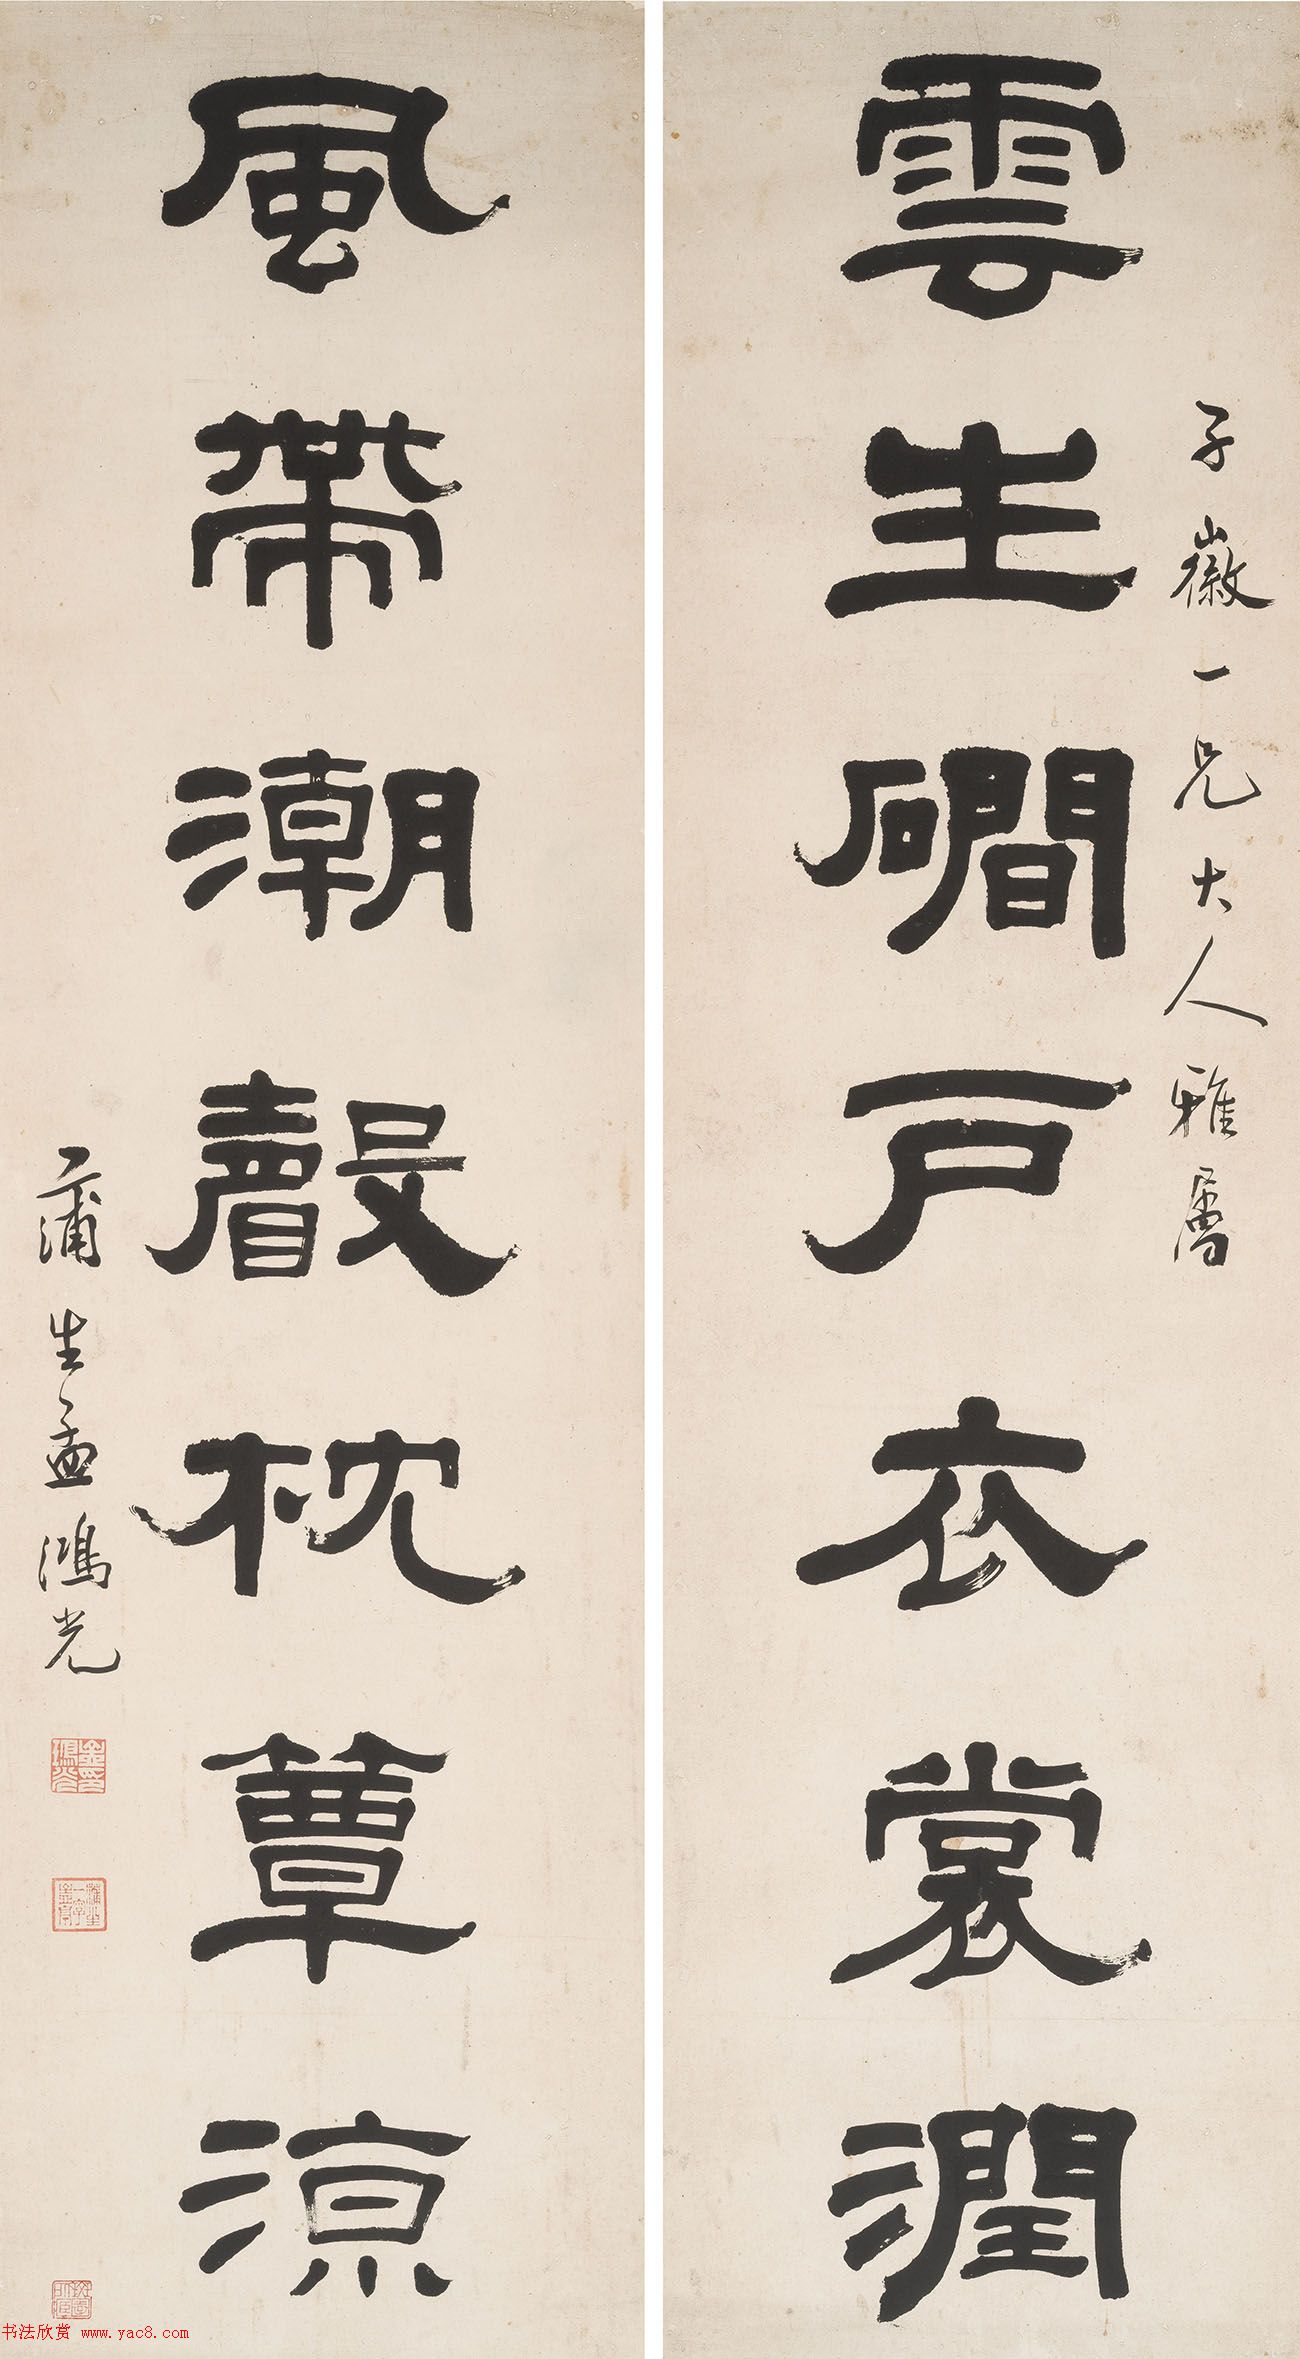 雲生磵戶衣裳潤
子徽一兄大人雅屬
風帶潮聲枕簟涼
蒲生孟鴻光
书法欣赏 www.yac8.com